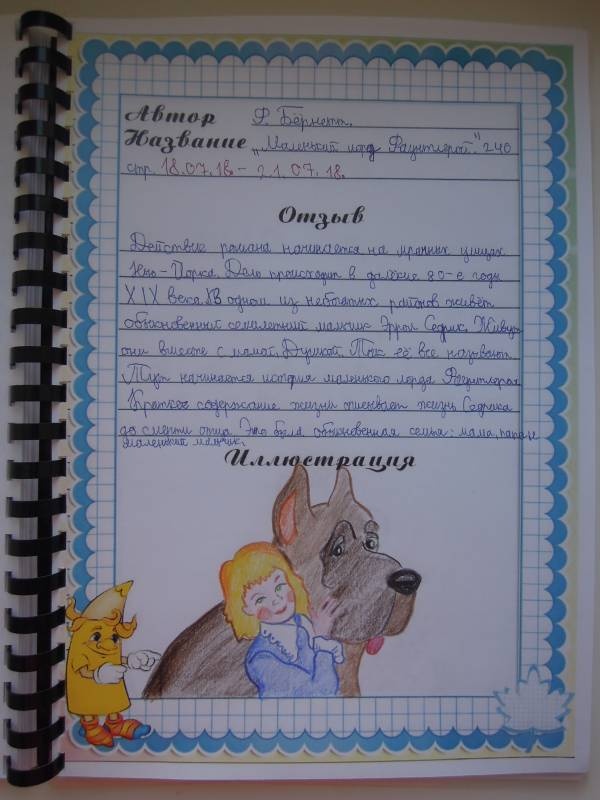 Автор Ф. Бёрнетт.
Название „Маленький лорд Фаунтлерой." 240
стр. 18.07.18. – 21.07.18.
Отзыв
Действие романа начинается на мрачных улицах
Нью-Йорка. Дело происходит в далёкие 80-е годы
XIX века. В одном из небогатых районов живёт
обыкновенный семилетний мальчик Эррол Седрик. Живут
они вместе с мамой, Душкой. Так её все называют.
Тут начинается история маленького лорда Фаунтлероя.
Краткое содержание жизни описывает жизнь Седрика
до смерти отца. Это была обыкновенная семья: мама, папа и
маленький мальчик.
Иллюстрация